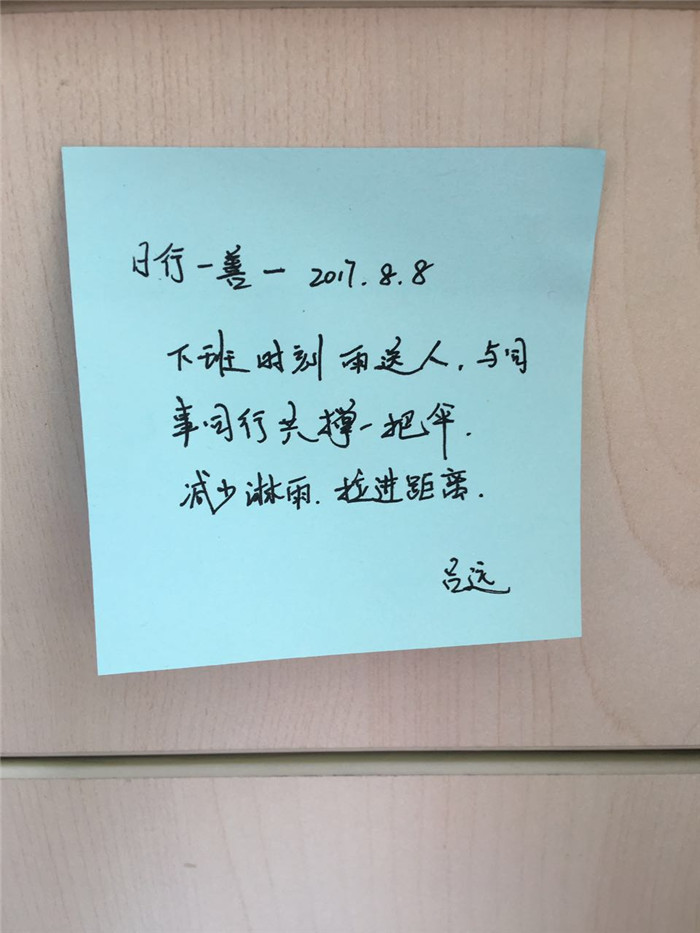 日行一善一 2017.8.8
下班时刻雨送人.与同
事同行共撑一把伞.
减少淋雨.拉进距离.
吕远